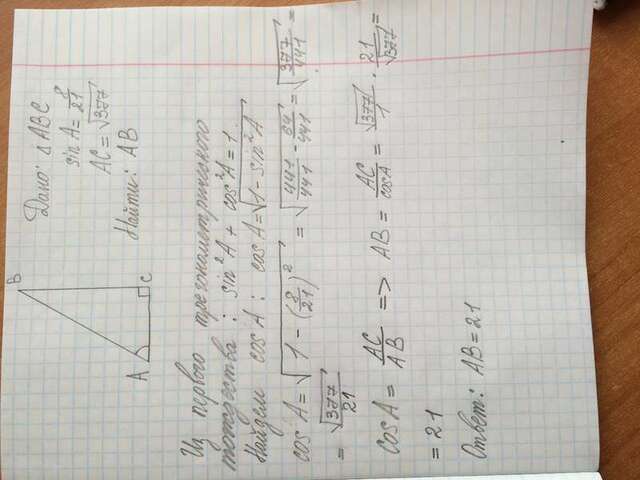 Дано: ΔABC
sin A = 8/21
AC = √377
Найти: AB
B
A
C
Из первого тригонометрического
тождества: sin²A + cos²A = 1.
Найдем cos A: cos A = √(1 - sin²A)
cos A = √(1 - (8/21)²) = √(441/441 - 64/441) = √(377/441) =
= √377/21
cos A = AC/AB => AB = AC/cosA = √377/1 · 21/√377 =
= 21
Ответ: AB = 21